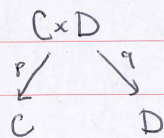 C×D
p q
C D